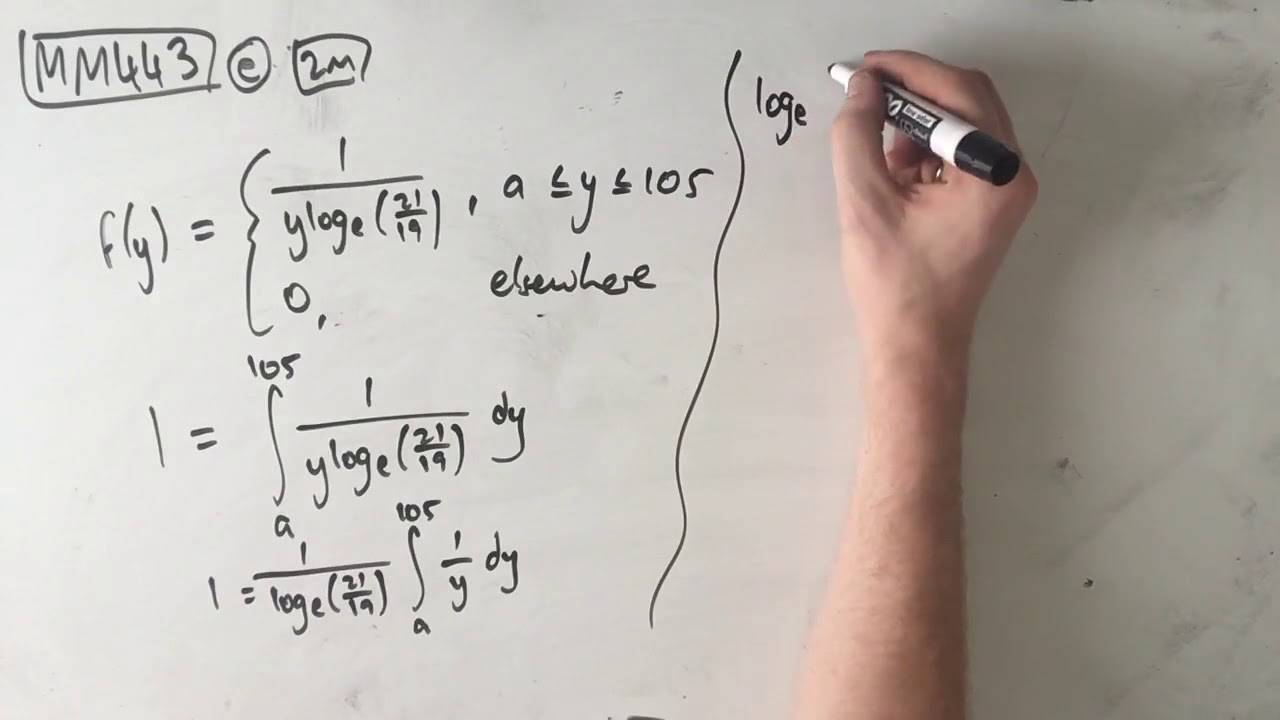 MM443 e 2M
f(y) = { 1 / (y loge (21/19)), a ≤ y ≤ 105
0, elsewhere
1 = ∫ₐ¹⁰⁵ 1 / (y loge (21/19)) dy
1 = 1 / (loge (21/19)) ∫ₐ¹⁰⁵ 1/y dy
loge